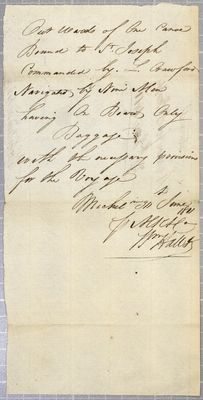 Out wards of One Canoe
Bound to St. Joseph
Commanded by L Crawford
Navigated by Nine Men
having On Board Only
Baggage
with the necessary provisions
for the Voyage
June